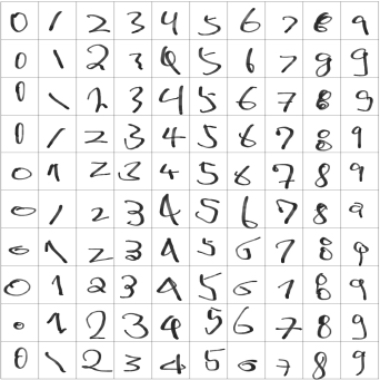 0 1 2 3 4 5 6 7 8 9
0 1 2 3 4 5 6 7 8 9
0 1 2 3 4 5 6 7 8 9
0 1 2 3 4 5 6 7 8 9
0 1 2 3 4 5 6 7 8 9
0 1 2 3 4 5 6 7 8 9
0 1 2 3 4 5 6 7 8 9
0 1 2 3 4 5 6 1 8 9
0 1 2 3 4 5 6 7 8 9
0 1 2 3 4 5 6 7 8 9